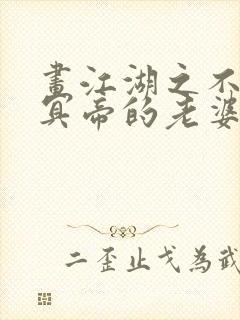 畫江湖之不
冥帝的老婆
二歪止戈為武